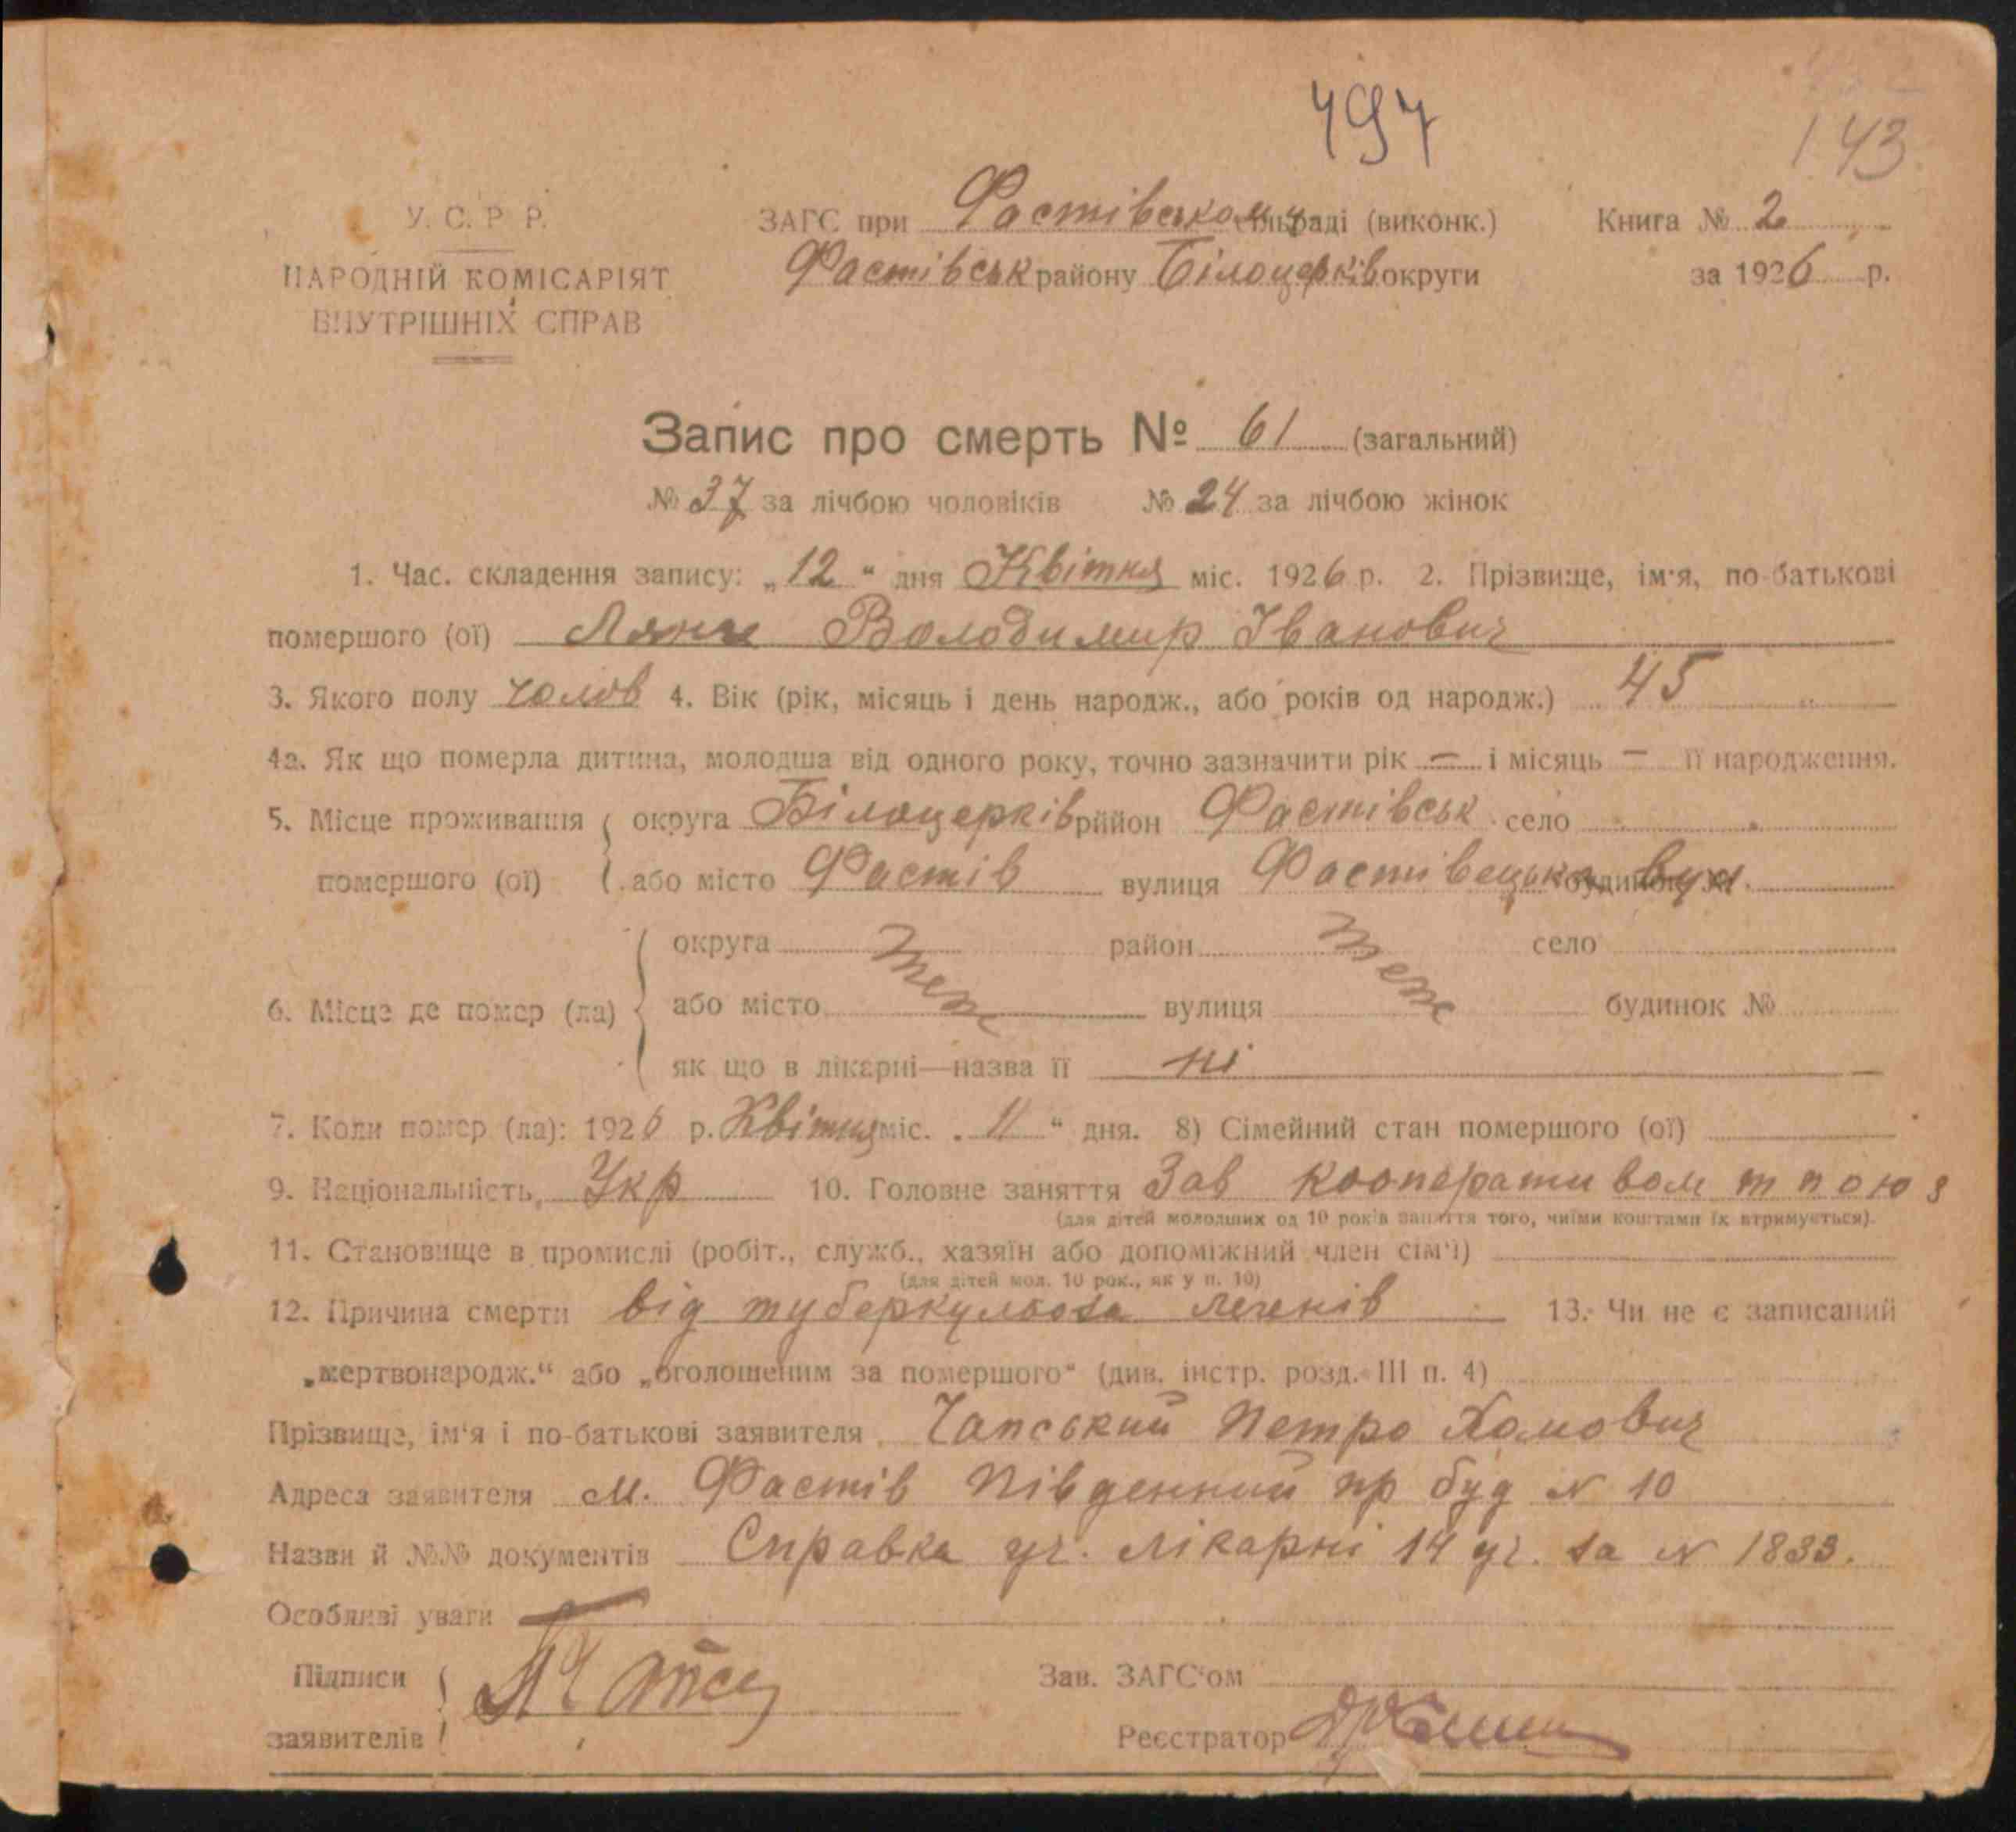 497
143
У. С. Р. Р.
НАРОДНІЙ КОМІСАРІЯТ
ВНУТРІШНІХ СПРАВ
ЗАГС при Фастівському сільраді (виконк.)
Фастівськ району Білоцерків округи
Книга № 2
за 1926 р.
Запис про смерть № 61 (загальний)
№ 37 за лічбою чоловіків № 24 за лічбою жінок
1. Час. складення запису: „12“ дня Квітня міс. 1926 р. 2. Прізвище, ім'я, по-батькові
помершого (ої) Володимир Іванович
3. Якого полу чолов 4. Вік (рік, місяць і день народж., або років од народж.) 45
4а. Як що померла дитина, молодша від одного року, точно зазначити рік — і місяць — її народження.
5. Місце проживання округа Білоцерків район Фастівськ село
помершого (ої) або місто Фастів вулиця Фастівецька вул будинок №
округа теж район теж село
6. Місце де помер (ла) або місто вулиця будинок №
як що в лікарні—назва її ні
7. Коли помер (ла): 1926 р. Квітня міс. „11“ дня. 8) Сімейний стан помершого (ої)
9. Національність Укр 10. Головне заняття Зав кооперативом
(для дітей молодших од 10 років заняття того, чиїми коштами їх втримується).
11. Становище в промислі (робіт., служб., хазяїн або допоміжний член сім'ї)
(для дітей мол. 10 рок., як у п. 10)
12. Причина смерти від туберкульоза легенів 13. Чи не є записаний
„мертвонародж.“ або „оголошеним за помершого“ (див. інстр. розд. III п. 4)
Прізвище, ім'я і по-батькові заявителя Чапський Петро Хомович
Адреса заявителя м. Фастів Південний пр буд N 10
Назви й №№ документів Справка уч. лікарні 14 уч. за N 1833.
Особливі уваги
Підписи
заявителів
Зав. ЗАГС'ом
Реєстратор